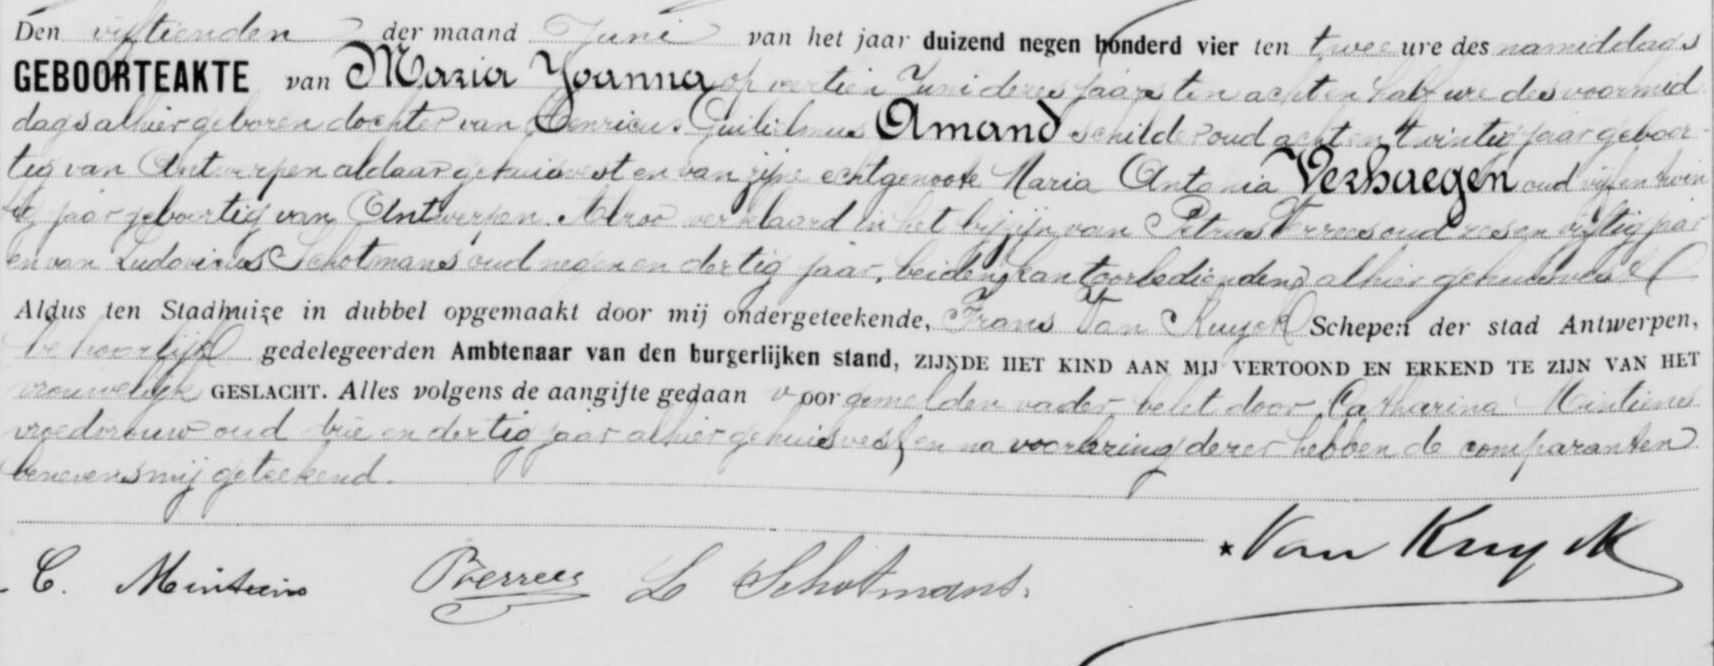 Den vijftienden der maand Juni van het jaar duizend negen honderd vier ten twee ure des namiddags
GEBOORTEAKTE van Maria Joanna op veertien Juni dezes jaars ten acht en half ure des voormid
dags alhier geboren dochter van Henricus Guilielmus Amand schilder oud acht en twintig jaar geboor-
tig van Antwerpen aldaar gehuisvest en van zijne echtgenoote Maria Antonia Verhaegen oud vijf en twin
tig jaar geboortig van Antwerpen. Alzoo verklaard in het bijzijn van Petrus Verrees oud zes en vijftig jaar
en van Ludovicus Schotmans oud negen en dertig jaar, beiden kantoorbedienden alhier gehuisvest
Aldus ten Stadhuize in dubbel opgemaakt door mij ondergeteekende, Frans Van Kuyck Schepen der stad Antwerpen,
behoorlijk gedelegeerden Ambtenaar van den burgerlijken stand, ZIJNDE HET KIND AAN MIJ VERTOOND EN ERKEND TE ZIJN VAN HET
vrouwelijk GESLACHT. Alles volgens de aangifte gedaan voor gemelden vader, belet door Catharina Mintiens
vroedvrouw oud drie en dertig jaar alhier gehuisvest, en na voorlezing dezer hebben de comparanten
benevens mij geteekend.
* Van Kuyck
C. Mintiens PVerrees L Schotmans.